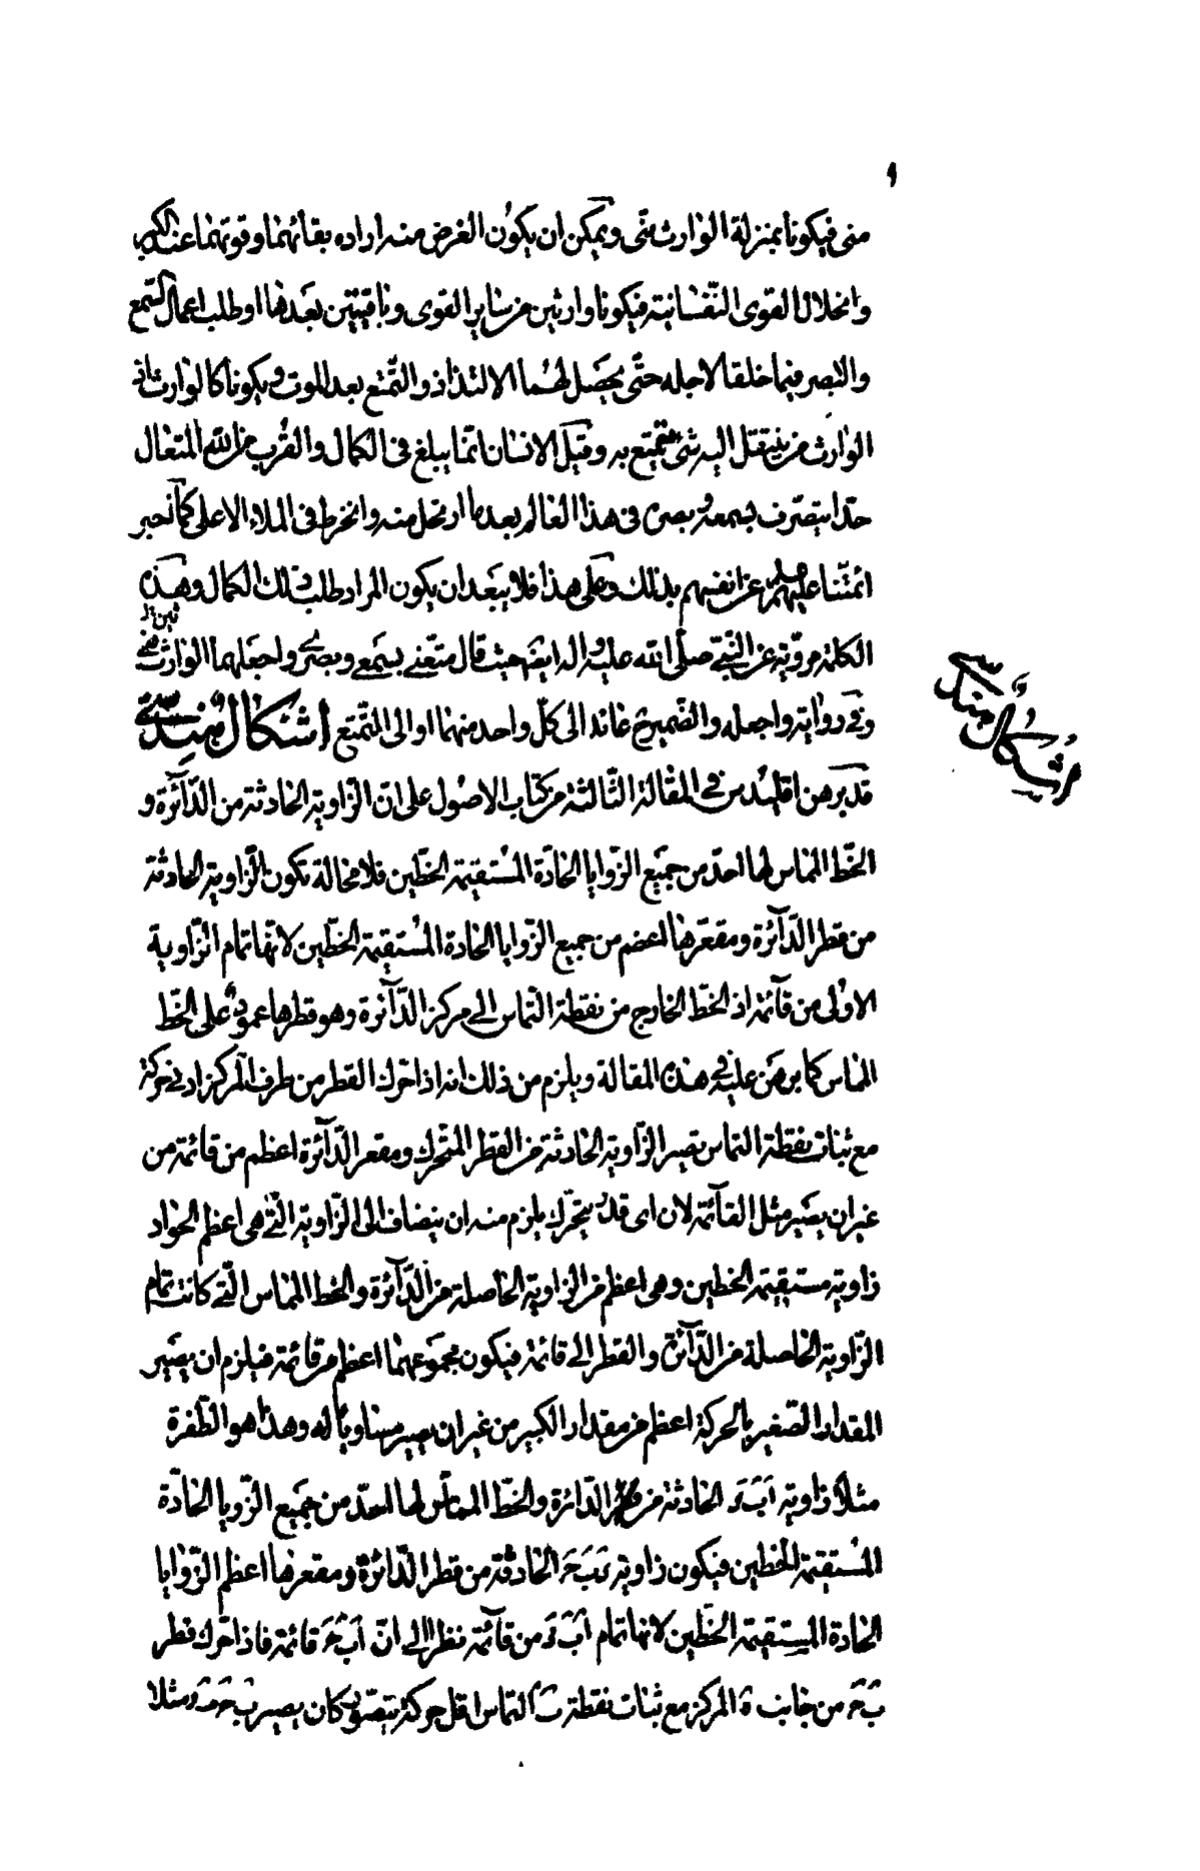 ٩
منى فيكونا بمنزلة الوارث منى ويمكن ان يكون الغرض منه اراده بقائهما وقوتهما عند الكبر
وانحلال القوى النفسانية فيكونا وارثين من ساير القوى وباقيتين بعدها او طلب اعمال السمع
والبصر فيما خلقا لاجله حتى يحصل لهما الالتذاذ والتمتع بعد الموت ويكونا كالوارث اذ
الوارث من ينتقل اليه شئ يتمتع به وقيل الانسان انما يبلغ فى الكمال والقرب من الله المتعال
حدا يتصرف بسمعه وبصره فى هذا العالم بعد ما ارتحل منه وانخرط فى الملاء الاعلى كما اخبر
ائمتنا عليهم عن انفسهم بذلك وعلى هذا فلا يبعد ان يكون المراد طلب ذلك الكمال وهذه
الكلمة مروية عن النبى صلى الله عليه واله ايضا حيث قال متعنى بسمعى وبصرى واجعلهما الوارثين منى
وفى رواية واجعله والضمير ح عائد الى كل واحد منهما او الى التمتع اشكال هندسى
قد برهن اقليدس فى المقالة الثالثة من كتاب الاصول على ان الزاوية الحادثة من الدآئرة و
الخط المماس لها احد من جميع الزوايا الحادة المستقيمة الخطين فلا محالة تكون الزاوية الحادثة
من قطر الدآئرة ومقعرها اعضم من جميع الزوايا الحادة المستقيمة الخطين لانها تمام الزاوية
الاولى من قآئمة اذ الخط الخارج من نقطة التماس الى مركز الدآئرة وهو قطرها عمود على الخط
المماس كما برهن عليه فى هذه المقالة ويلزم من ذلك انه اذا حرك القطر من طرف المركز ادنى حركة
مع ثبات نقطة التماس تصير الزاوية الحادثة من القطر المتحرك ومقعر الدآئرة اعظم من قائمة من
غير ان يصير مثل القآئمة لان اى قدر يتحرك يلزم منه ان ينضاف الى الزاوية التى هى اعظم الحواد
زاوية مستقيمة الخطين وهى اعظم من الزاوية الحاصلة من الدآئرة والخط المماس التى كانت تمام
الزاوية الحاصلة من الدآئرة والقطر الى قائمة فيكون مجموعهما اعظم من قائمة فيلزم ان يصير
المقدار الصغير بالحركة اعظم من مقدار الكبير من غير ان يصير مساويا له وهذا هو الطفرة
مثلا زاوية ا ب د الحادثة من الدائرة والخط المماس لها احد من جميع الزويا الحادة
المستقيمة الخطين فيكون زاوية د ب ح الحادثة من قطر الدائرة ومقعرها اعظم الزوايا
الحادة المستقيمة الخطين لانها تمام ا ب د من قآئمة نظرا الى ان ا ب ح قائمة فاذا حرك قطر
ب ح من جانب المركز مع ثبات نقطة ب التماس اقل حركة يتصور كان يصير مثلا
اشكال هندسى